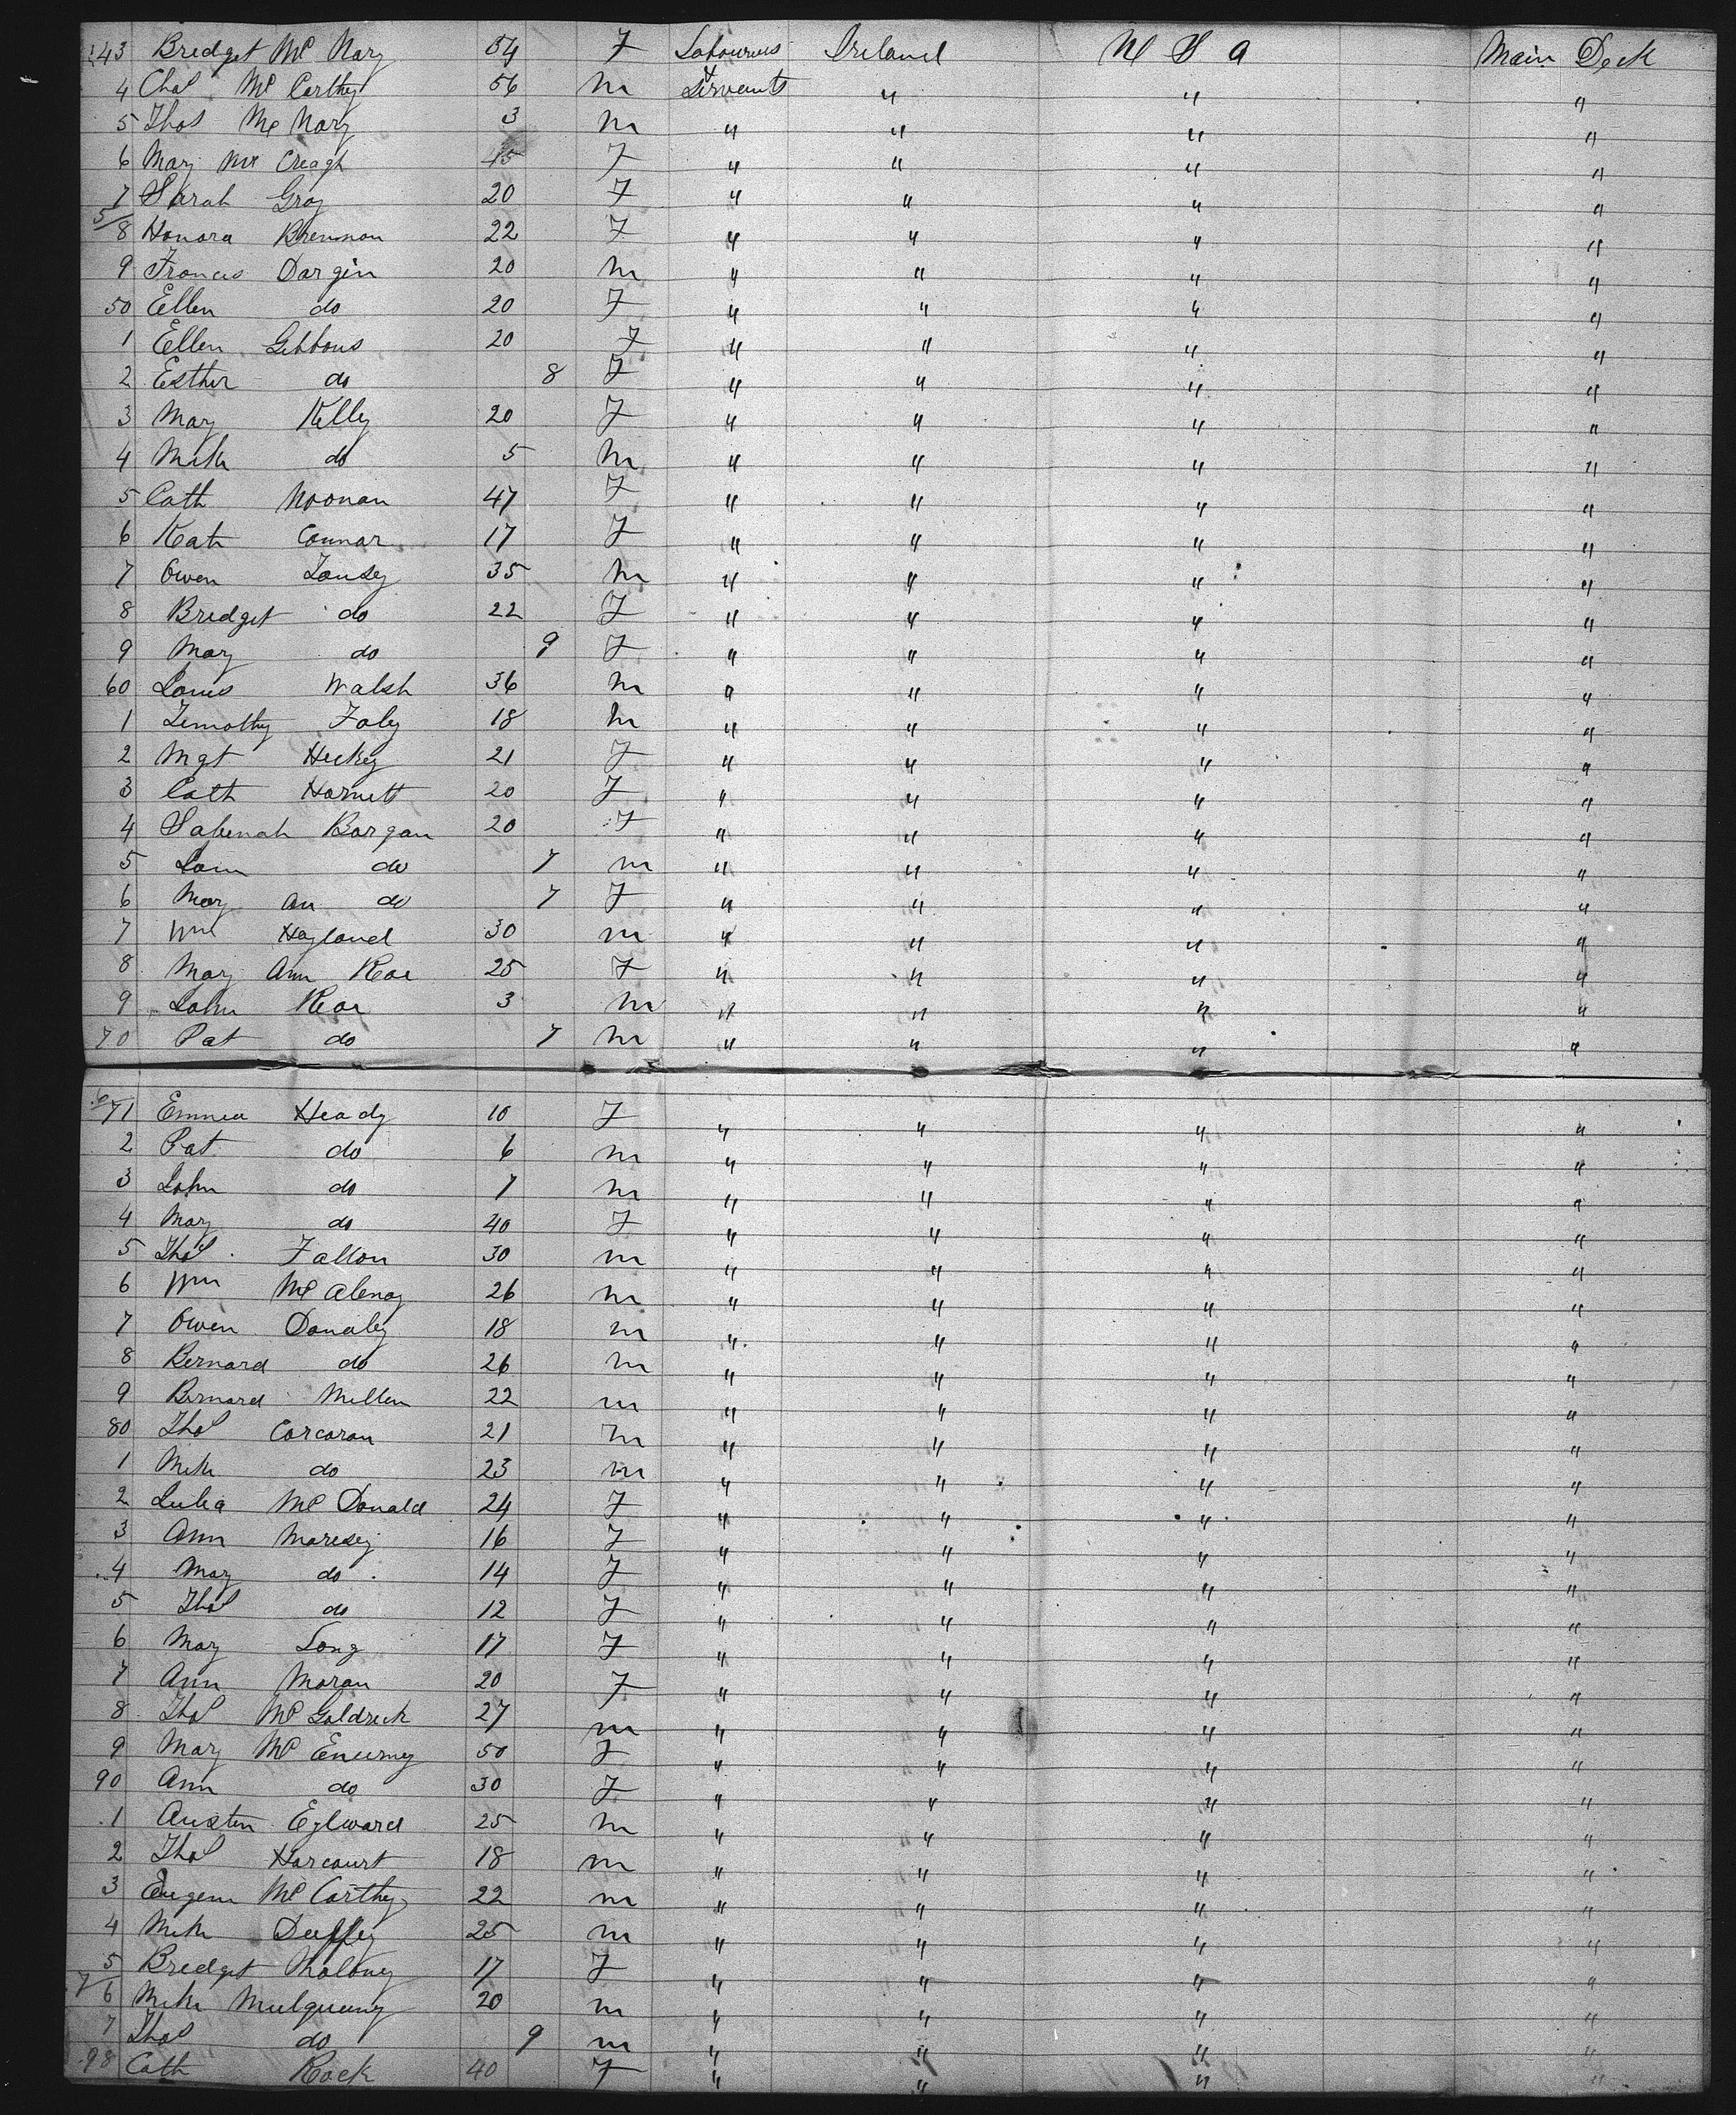 143 Bridget Mc Nary 54 F Labourers Ireland U S A Main Deck
4 Chas Mc Carthy 56 m & Servants " " "
5 Thos Mc Nary 3 m " " " "
6 Mary Mc Creagh 45 F " " " "
7 Sarah Gray 20 F " " " "
5/
8 Honora Brennan 22 F " " " "
9 Francis Dargin 20 m " " " "
50 Ellen do 20 F " " " "
1 Ellen Gibbons 20 F " " " "
2 Esther do 8 F " " " "
3 Mary Kelly 20 F " " " "
4 Mich do 5 m " " " "
5 Cath Noonan 47 F " " " "
6 Kate Connor 17 F " " " "
7 Owen 35 m " " " "
8 Bridget do 22 F " " " "
9 Mary do 9 F " " " "
60 James Walsh 36 m " " " "
1 Timothy Foley 18 m " " " "
2 Mgt Hickey 21 F " " " "
3 Cath Harnett 20 F " " " "
4 Sabenah Borgan 20 F " " " "
5 do 7 m " " " "
6 Mary An do 7 F " " " "
7 Wm Hayland 30 m " " " "
8 Mary Ann Roe 25 F " " " "
9 John Roe 3 m " " " "
70 Pat do 7 m " " " "
6/
71 Emma Heady 10 F " " " "
2 Pat do 6 m " " " "
3 John do 7 m " " " "
4 Mary do 40 F " " " "
5 Thos Fallon 30 m " " " "
6 Wm Mc Alenay 26 m " " " "
7 Owen Donaley 18 m " " " "
8 Bernard do 26 m " " " "
9 Bernard Millen 22 m " " " "
80 Thos Corcoran 21 m " " " "
1 Mich do 23 m " " " "
2 Julia Mc Donald 24 F " " " "
3 Ann 16 F " " " "
4 Mary do 14 F " " " "
5 Thos do 12 F " " " "
6 Mary Long 17 F " " " "
7 Ann Moran 20 F " " " "
8 Thos Mc Goldrick 27 m " " " "
9 Mary Mc Enerney 50 F " " " "
90 Ann do 30 F " " " "
1 Austen Eglward 25 m " " " "
2 Thos Harcourt 18 m " " " "
3 Eugene Mc Carthy 22 m " " " "
4 Mich Duffey 25 m " " " "
5 Bridget Maloney 17 F " " " "
7/
6 Mich Mulqueeny 20 m " " " "
7 Thos do 9 m " " " "
98 Cath Rock 40 F " " " "